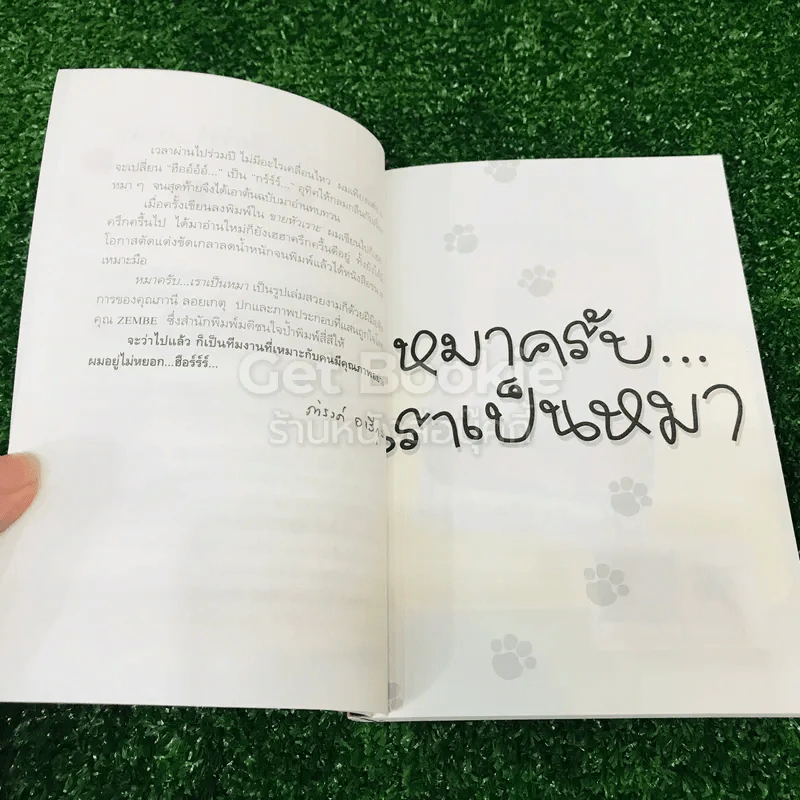 เวลาผ่านไปร่วมปี ไม่มีอะไรเคลื่อนไหว ผมเพียงแต่
จะเปลี่ยน "ฮืออ์อ์อ์..." เป็น "กร์ร์ร์..." อุทิศให้กลมกลืนกับ
หมา ๆ จนสุดท้ายจึงได้เอาต้นฉบับมาอ่านทบทวน
เมื่อครั้งเขียนลงพิมพ์ใน ขายหัวเราะ ผมเขียนไป
ครึกครื้นไป ได้มาอ่านใหม่ก็ยังเฮฮาครึกครื้นดีอยู่ ทั้งยังได้
โอกาสตัดแต่งขัดเกลาลดน้ำหนักจนพิมพ์แล้วได้หนังสือ
เหมาะมือ
หมาครับ...เราเป็นหมา เป็นรูปเล่มสวยงามก็ด้วยฝีมือ
การของคุณภานี ลอยเกตุ ปกและภาพประกอบที่แสนถูกใจ
คุณ ZEMBE ซึ่งสำนักพิมพ์มติชนใจป้ำพิมพ์สี่สีให้
จะว่าไปแล้ว ก็เป็นทีมงานที่เหมาะกับคนมีคุณภาพ
ผมอยู่ไม่หยอก...ฮือร์ร์ร์...
หมาครับ...
เราเป็นหมา
Get Bookie